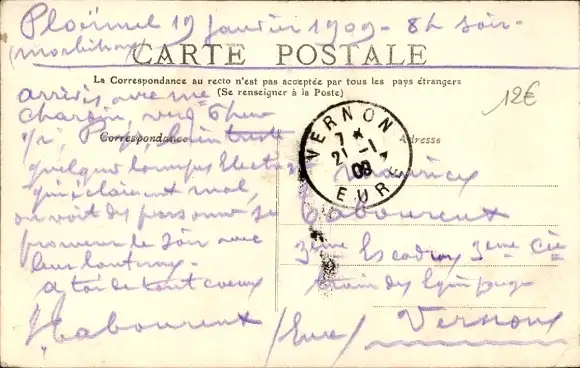 Ploërmel 19 Janvier 1909 - 8h soir -
(Morbihan)
CARTE POSTALE
La Correspondance au recto n'est pas acceptée par tous les pays étrangers
(Se renseigner à la Poste)
12€
arrivés avec Me
Correspondance
quelques lampes Electri
qui éclairent mal,
on voit des personnes se
promener le soir avec
leur lanterne
a toi de tout coeur
Taboureux
VERNON
7 *
21 - 1
09
EURE
Adresse
Maurice
Taboureux
3ème Escadron 3ème Cie
train des Equipages
Vernon
(Eure)